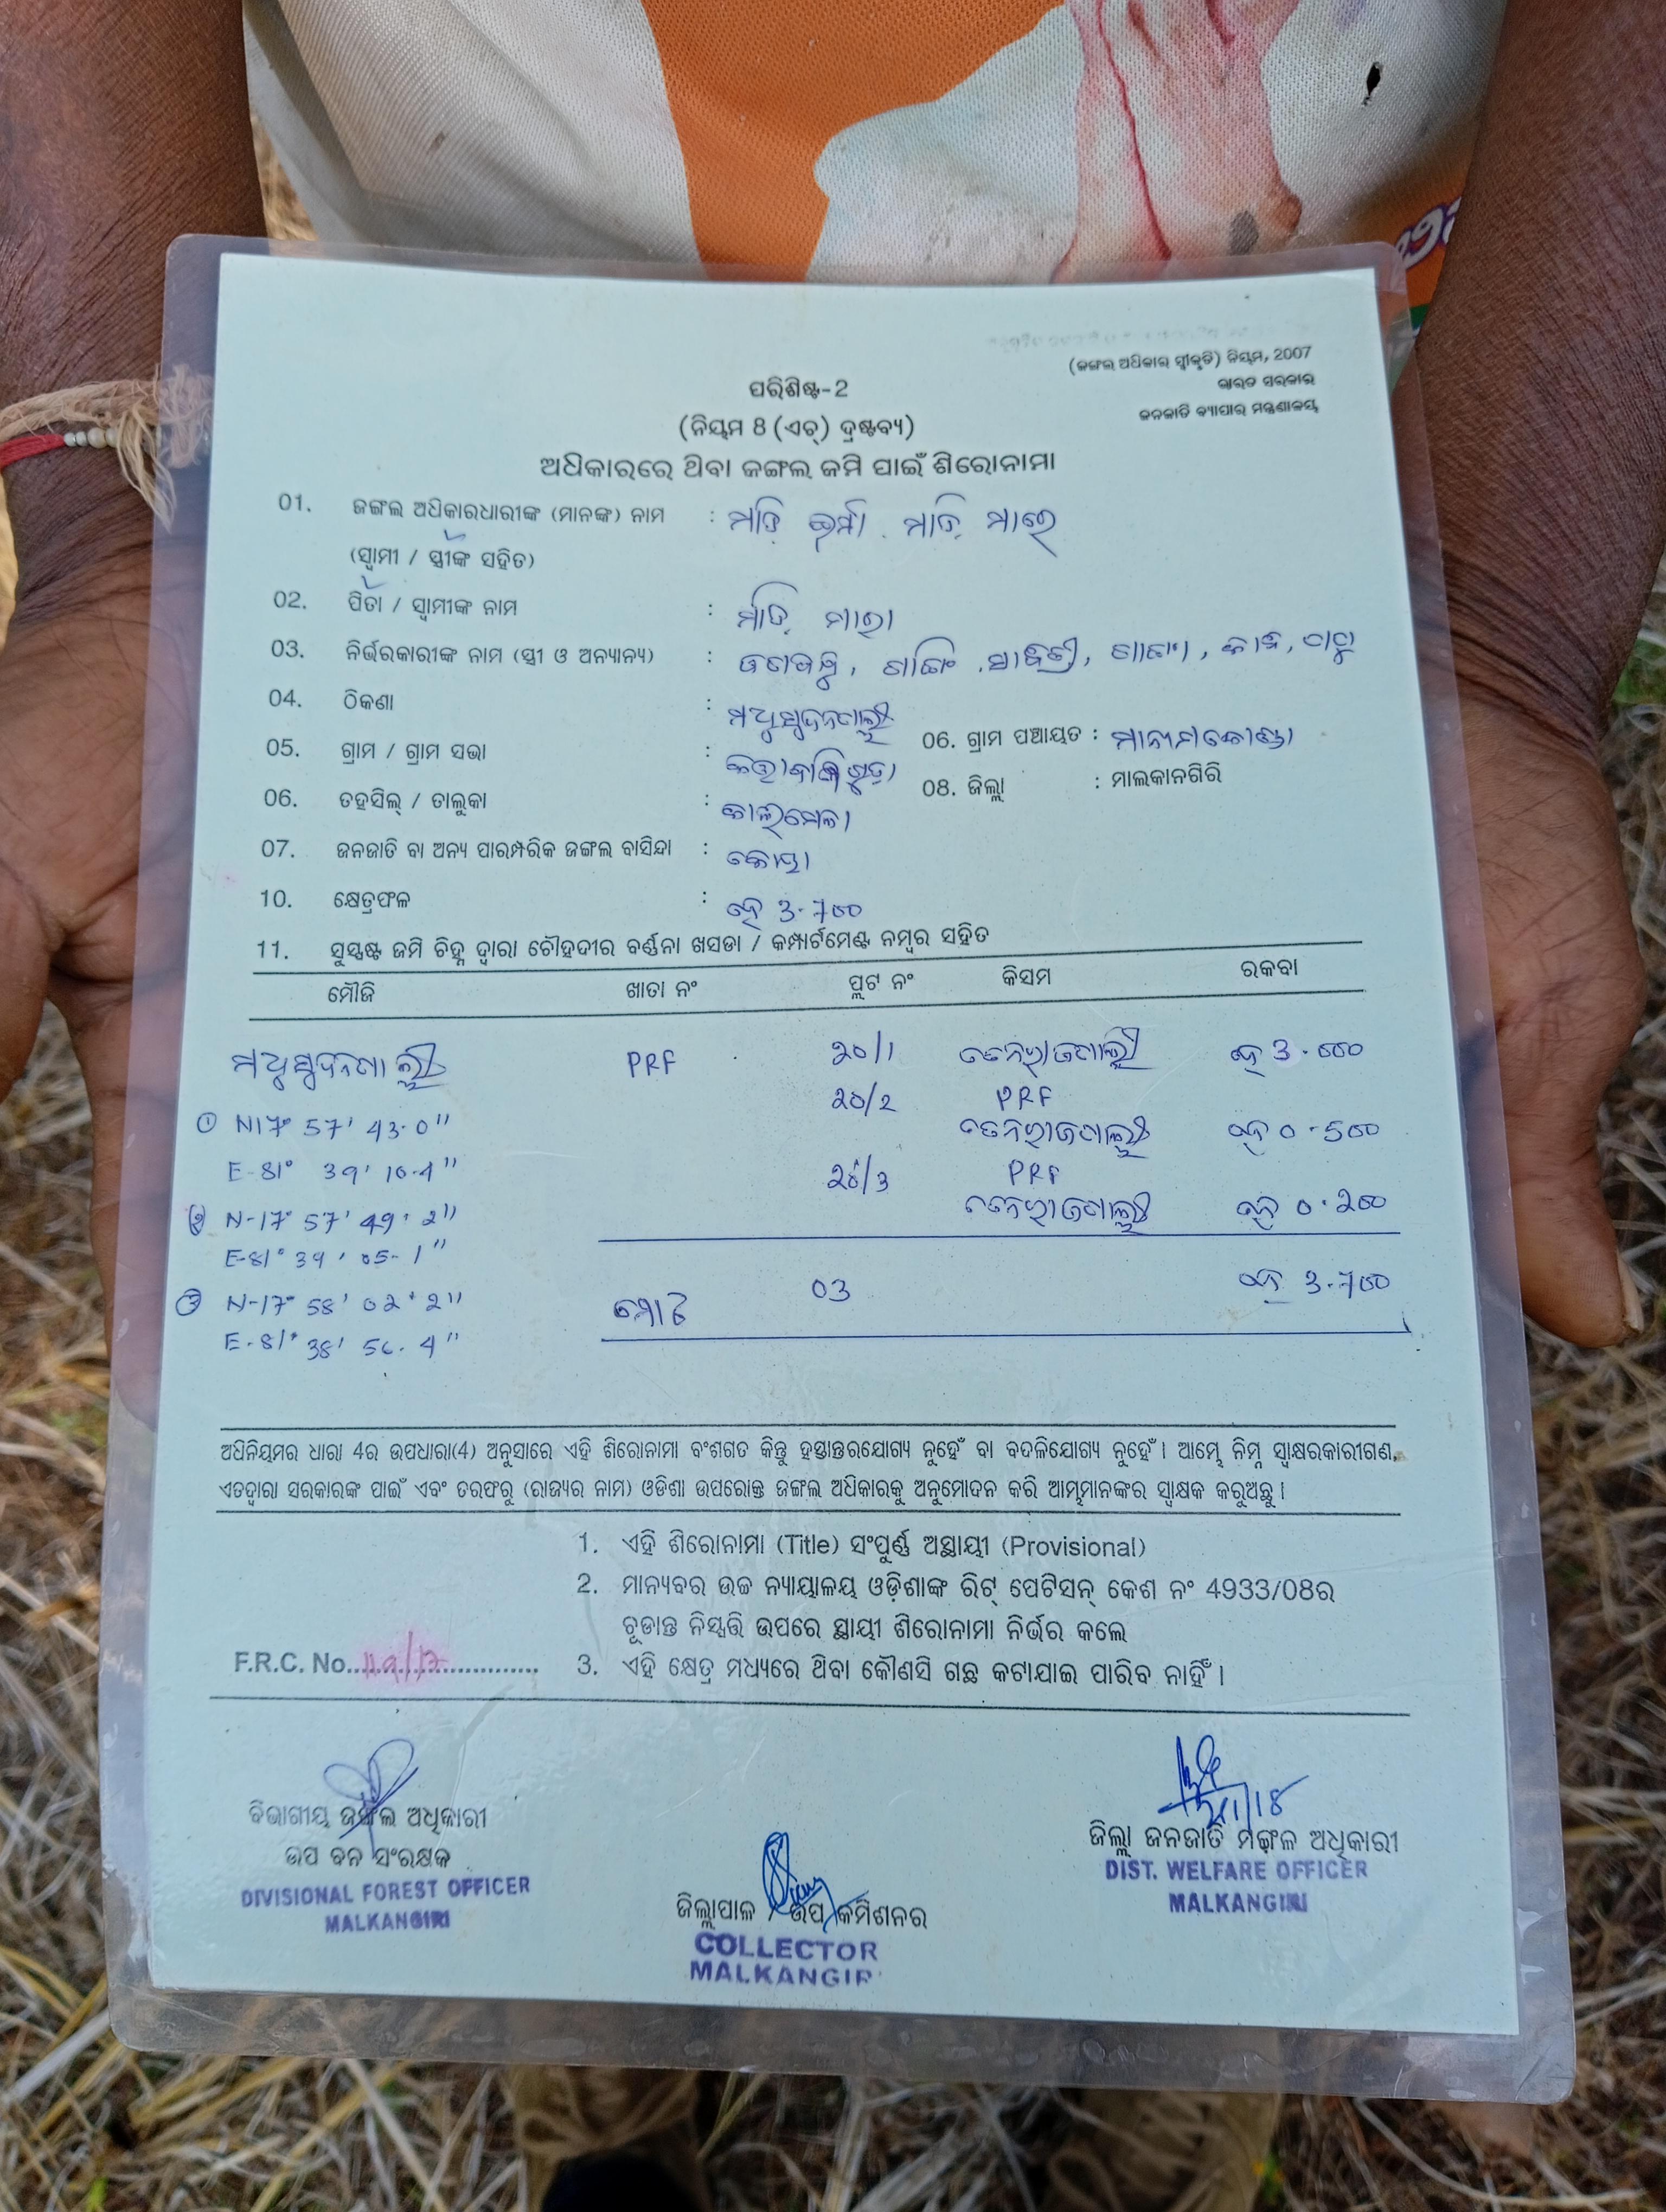 (ଜଙ୍ଗଲ ଅଧିକାର ସ୍ୱୀକୃତି) ନିୟମ, 2007
ଭାରତ ସରକାର
ଜନଜାତି ବ୍ୟାପାର ମନ୍ତ୍ରଣାଳୟ
ପରିଶିଷ୍ଟ-2
(ନିୟମ 8 (ଏଚ୍) ଦ୍ରଷ୍ଟବ୍ୟ)
ଅଧିକାରରେ ଥିବା ଜଙ୍ଗଲ ଜମି ପାଇଁ ଶିରୋନାମା
01. ଜଙ୍ଗଲ ଅଧିକାରଧାରୀଙ୍କ (ମାନଙ୍କ) ନାମ : ମାଡ଼ି ଭୀର୍ମା . ମାଡ଼ି ମାରେ
(ସ୍ୱାମୀ / ସ୍ତ୍ରୀଙ୍କ ସହିତ)
02. ପିତା / ସ୍ୱାମୀଙ୍କ ନାମ : ମାଡ଼ି
03. ନିର୍ଭରକାରୀଙ୍କ ନାମ (ସ୍ତ୍ରୀ ଓ ଅନ୍ୟାନ୍ୟ) :
04. ଠିକଣା : ମଧୁସୁଦନପାଲ୍ଲୀ
05. ଗ୍ରାମ / ଗ୍ରାମ ସଭା : 06. ଗ୍ରାମ ପଞ୍ଚାୟତ : ମାନ୍ୟମକୋଣ୍ଡା
06. ତହସିଲ୍ / ତାଲୁକା : କାଲିମେଳା 08. ଜିଲ୍ଲା : ମାଲକାନଗିରି
07. ଜନଜାତି ବା ଅନ୍ୟ ପାରମ୍ପରିକ ଜଙ୍ଗଲ ବାସିନ୍ଦା : କୋୟା
10. କ୍ଷେତ୍ରଫଳ : ହେ 3.700
11. ସୁସ୍ପଷ୍ଟ ଜମି ଚିହ୍ନ ଦ୍ୱାରା ଚୌହଦୀର ବର୍ଣ୍ଣନା ଖସଡା / କମ୍ପାର୍ଟମେଣ୍ଟ ନମ୍ବର ସହିତ
ମୌଜି ଖାତା ନଂ ପ୍ଲଟ ନଂ କିସମ ରକବା
ମଧୁସୁଦନପାଲ୍ଲୀ PRF 20/1 ହେ 3.000
20/2 PRF
① N17° 57' 43.0" ହେ 0.500
E-81° 39' 10.4" 20/3 PRF
② N-17° 57' 49.2" ହେ 0.200
E-81° 39' 05.1"
③ N-17° 58' 02.2" ମୋଟ 03 ହେ 3.700
E-81° 38' 56.4"
ଅଧିନିୟମର ଧାରା 4ର ଉପଧାରା(4) ଅନୁସାରେ ଏହି ଶିରୋନାମା ବଂଶଗତ କିନ୍ତୁ ହସ୍ତାନ୍ତରଯୋଗ୍ୟ ନୁହେଁ ବା ବଦଳିଯୋଗ୍ୟ ନୁହେଁ । ଆମ୍ଭେ ନିମ୍ନ ସ୍ୱାକ୍ଷରକାରୀଗଣ,
ଏତଦ୍ୱାରା ସରକାରଙ୍କ ପାଇଁ ଏବଂ ତରଫରୁ (ରାଜ୍ୟର ନାମ) ଓଡିଶା ଉପରୋକ୍ତ ଜଙ୍ଗଲ ଅଧିକାରକୁ ଅନୁମୋଦନ କରି ଆମ୍ଭମାନଙ୍କର ସ୍ୱାକ୍ଷକ କରୁଅଛୁ ।
1. ଏହି ଶିରୋନାମା (Title) ସଂପୂର୍ଣ୍ଣ ଅସ୍ଥାୟୀ (Provisional)
2. ମାନ୍ୟବର ଉଚ୍ଚ ନ୍ୟାୟାଳୟ ଓଡ଼ିଶାଙ୍କ ରିଟ୍ ପେଟିସନ୍ କେଶ ନଂ 4933/08ର
ଚୂଡାନ୍ତ ନିସ୍ପତ୍ତି ଉପରେ ସ୍ଥାୟୀ ଶିରୋନାମା ନିର୍ଭର କଲେ
F.R.C. No. 119/17 3. ଏହି କ୍ଷେତ୍ର ମଧ୍ୟରେ ଥିବା କୌଣସି ଗଛ କଟାଯାଇ ପାରିବ ନାହିଁ ।
ବିଭାଗୀୟ ଜଙ୍ଗଲ ଅଧିକାରୀ
ଉପ ବନ ସଂରକ୍ଷକ
DIVISIONAL FOREST OFFICER
MALKANGIRI
ଜିଲ୍ଲାପାଳ / ଉପ କମିଶନର
COLLECTOR
MALKANGIR
ଜିଲ୍ଲା ଜନଜାତି ମଙ୍ଗଳ ଅଧିକାରୀ
DIST. WELFARE OFFICER
MALKANGIRI